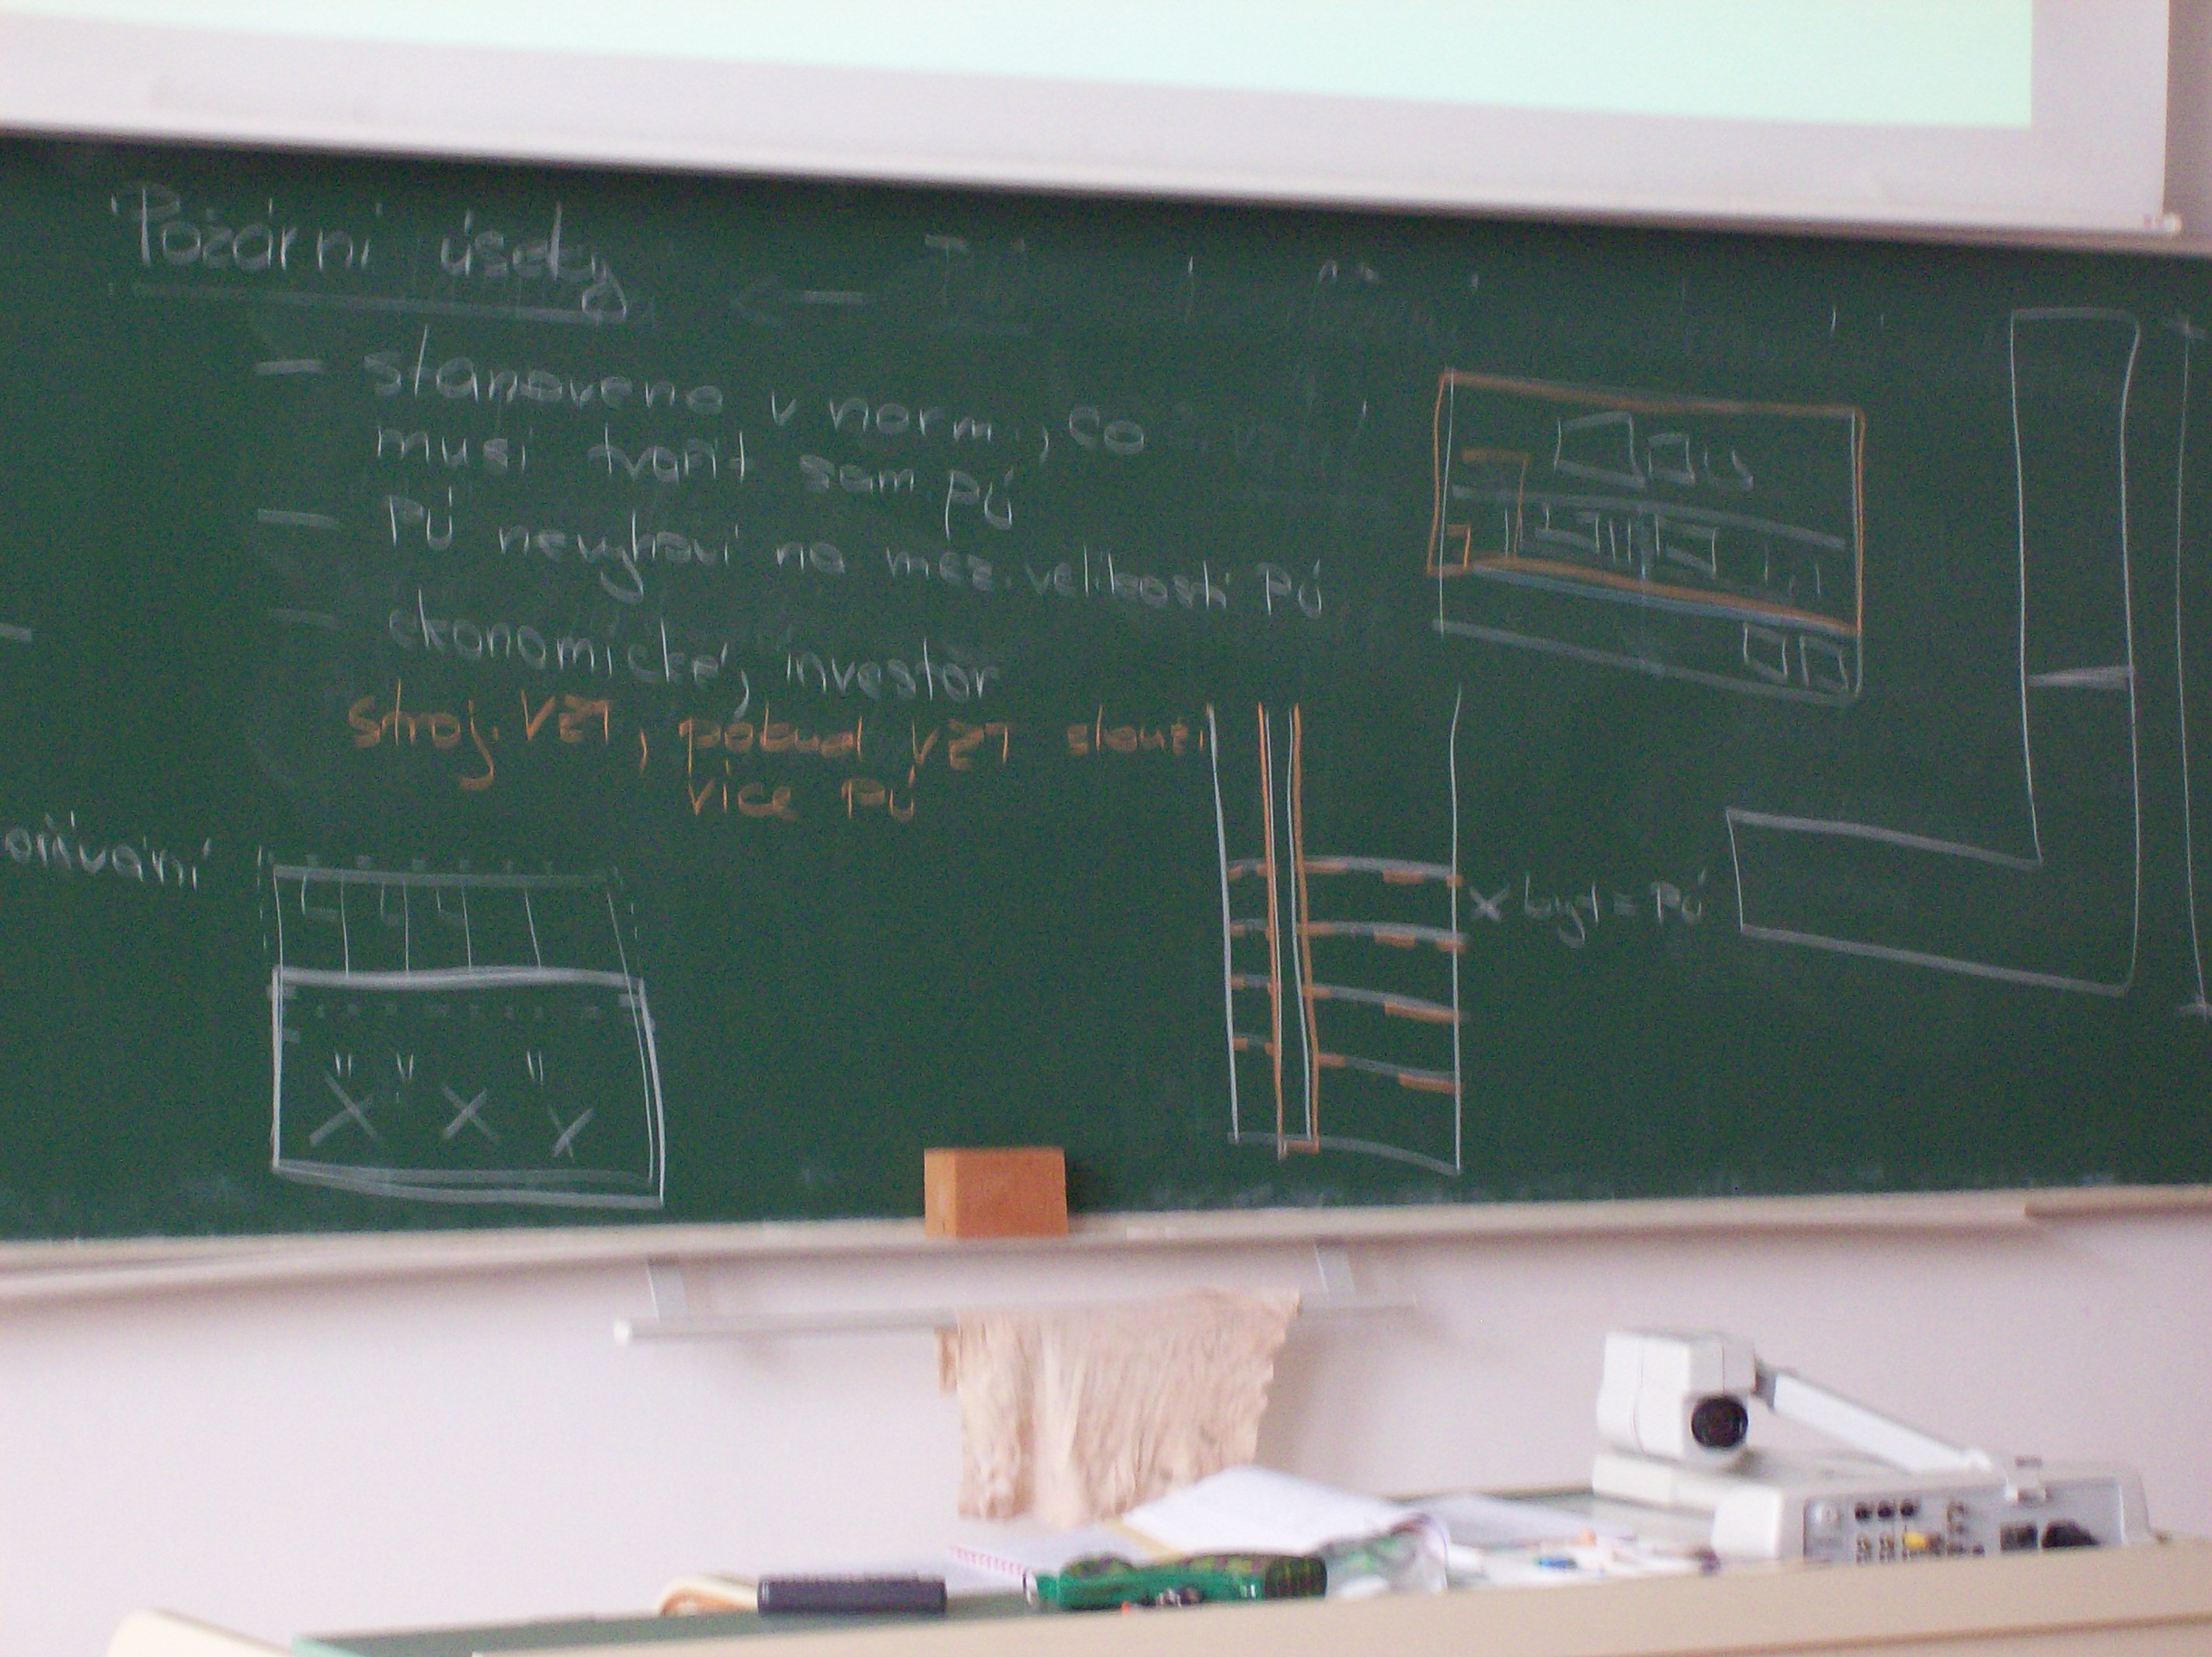 Požární úseky
– stanoveno v norm., co
musí tvořit sam. PÚ
– PÚ nevyhoví na mez. velikosti PÚ
– ekonomické, investor
stroj. VZT, pokud VZT slouží
více PÚ
x byt = PÚ